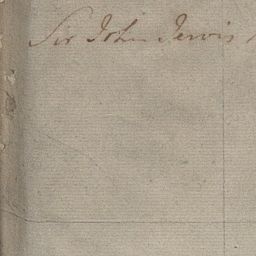 Sir John Jervis